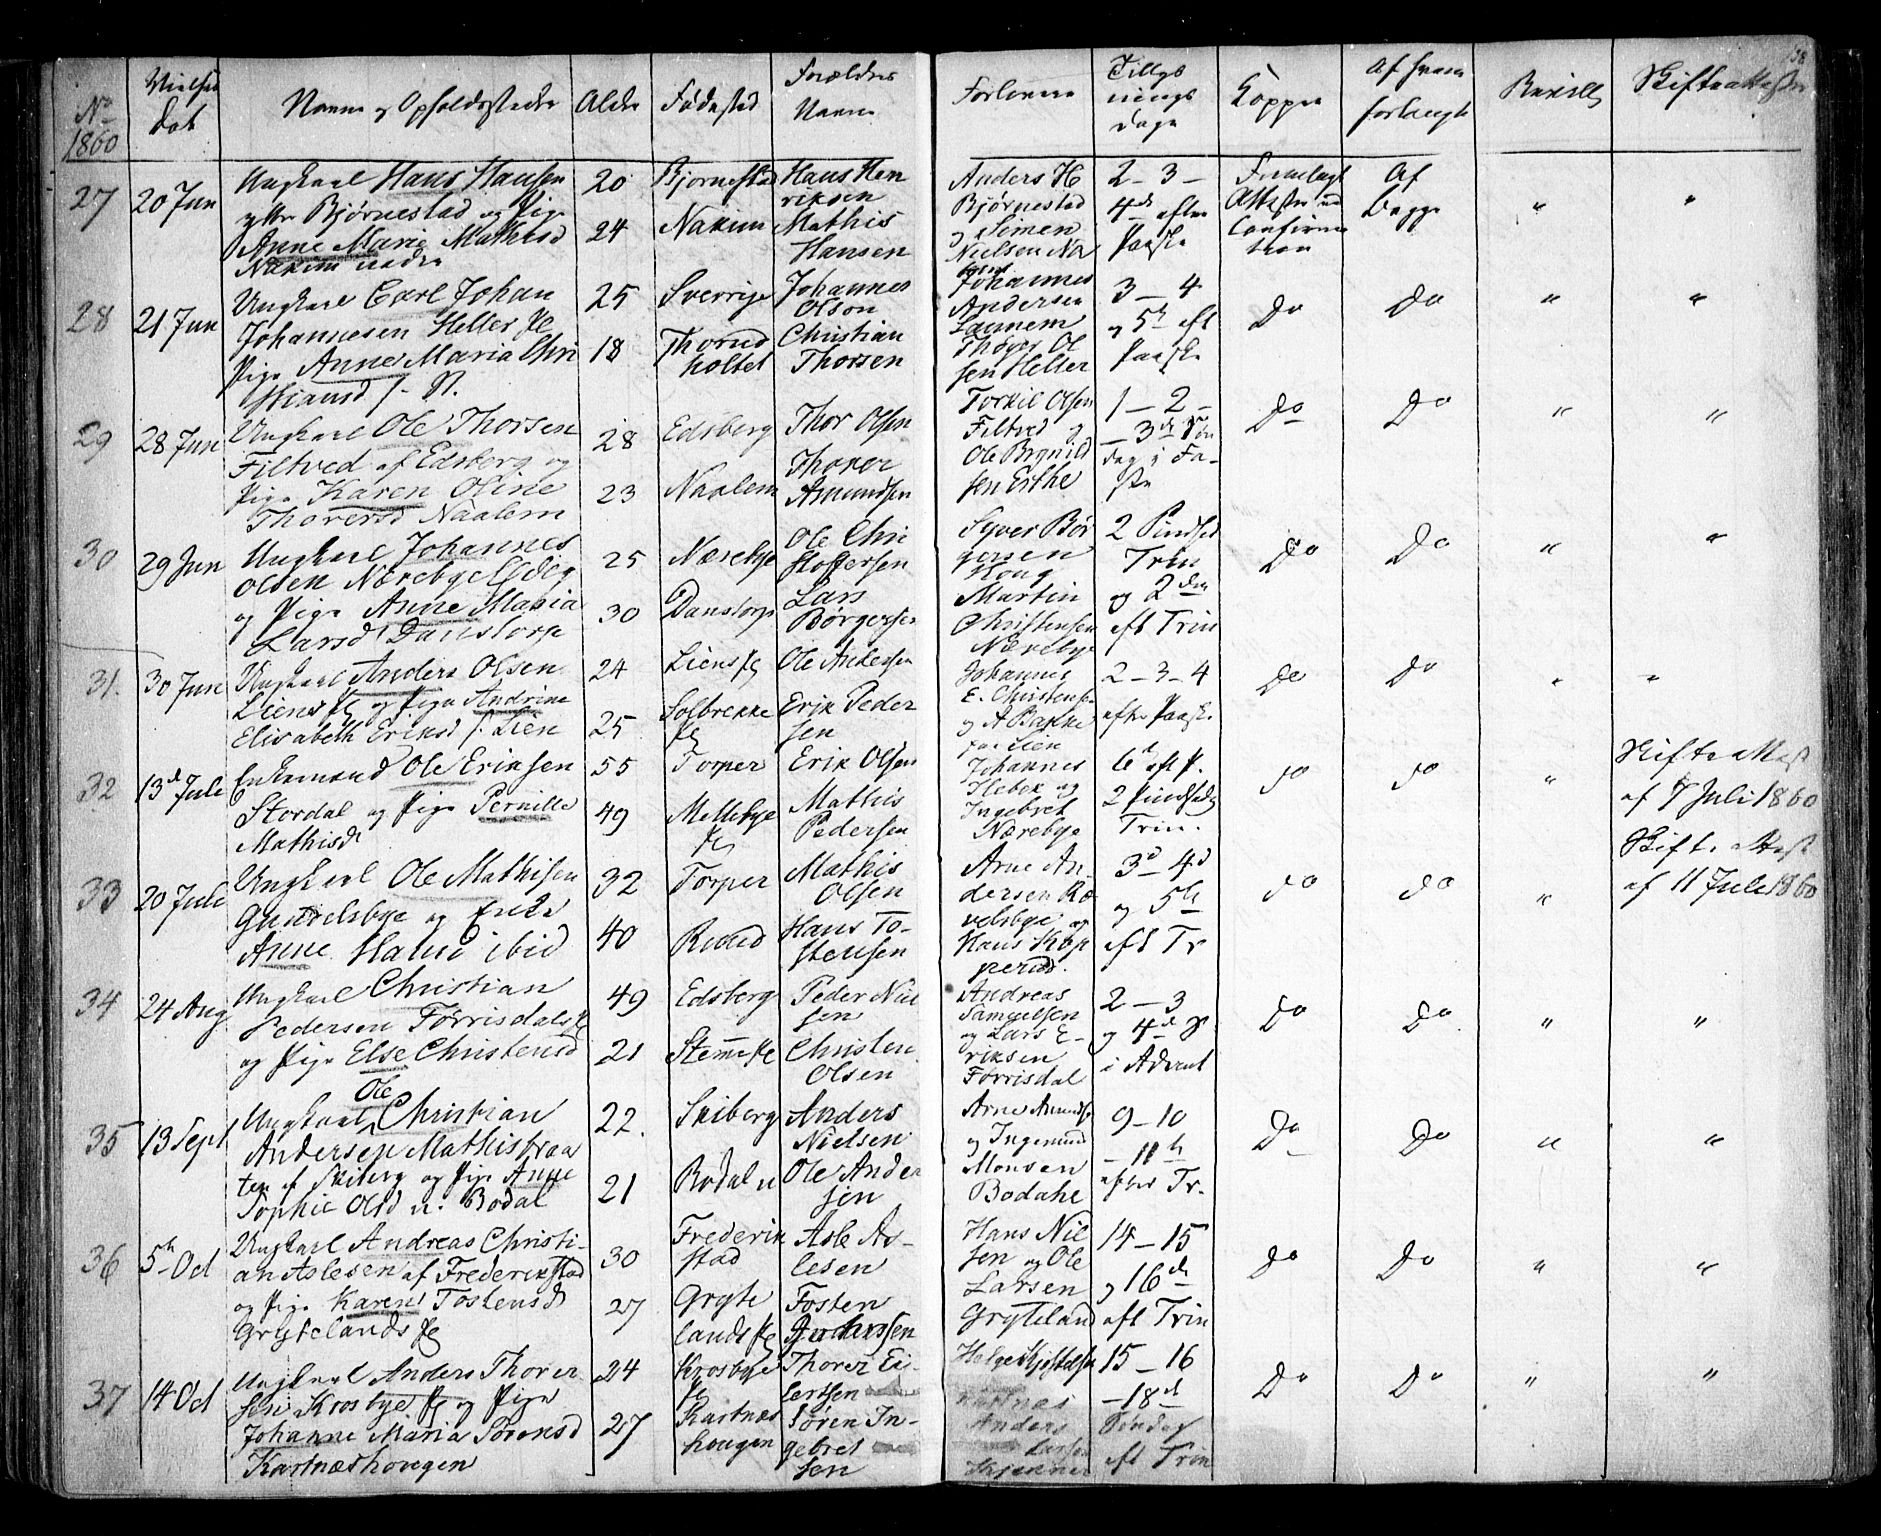 No 1860
Vielses Dat
Navne og Opholdssteder
Alder
Fødested
Forældres Navne
Forlovere
Tillysnings dage
Kopper
Af hvem forlangt
Skifteattester
27
20 Jun
Ungkarl Hans Hansen
Bjørnestad og Pige
Anne Marie Mathisd
Nakim
20
24
Bjørnestad
Nakim
Hans Hen
riksen
Mathis
Hansen
Anders H
Bjørnestad
og Simen
Nielsen
2 - 3 -
4de efter
Paaske
Fremlagt
Attester
Confirma
tion
Af
Begge
"
"
28
21 Jun
Ungkarl Carl Johan
Johannesen Heller
Pige Anne Maria Chri
stiansd
25
18
Sverrige
Thorud
holtet
Johannes
Olson
Christian
Thorsen
Johannes
Andersen
Laumem
Thøger Ol
sen Heller
3 - 4
og 5te eft
Paaske
Do
Do
"
"
29
28 Jun
Ungkarl Ole Thorsen
Filtved af Edsberg og
Pige Karen Oline
Thorersd Naalem
28
23
Edsberg
Naalem
Thor Olsen
Thorer
Amundsen
Torkil Olsen
Filtved og
Ole Brynild
sen Erthe
1 - 2 -
- 3de Søn
dag i Fa-
ste
Do
Do
"
"
30
29 Jun
Ungkarl Johannes
Olsen Nærebye
og Pige Anne Maria
Larsd Danstorp
25
30
Nærebye
Danstorp
Ole Chri
stoffersen
Lars
Børgersen
Syver Bør
gersen
Houg
Martin
Christensen
Nærebye
2 Pindsed
Trin
og 2den
eft Trin
Do
Do
"
"
31.
30 Jun
Ungkarl Anders Olsen
Liens og Pige Andrine
Elisabeth Eriksd Lien
24
25
Liens
Solbrekke
Ole Andersen
Erik Peder
sen
Johannes
E. Christensen
og A Bakke
Lien
2 - 3 - 4
efter Paaske
Do
Do
"
"
32
13d Juli
Enkemand Ole Eriksen
Stordal og Pige Pernille
Mathisd
55
49
Torper
Mellebye
Erik Olsen
Mathis
Pedersen
Johannes
Ilebek og
Ingebret
Nærebye
6d eft P.
2 Pindsedag
Trin.
do
do
"
Skifte Attest
af 7 Juli 1860
33
20 Juli
Ungkarl Ole Mathisen
Gundelsbye og Enke
Anne Hansd ibid
32
40
Torper
Ruud
Mathis
Olsen
Hans To-
stensen
Arne An-
dersen Ra
velsbye og
Hans Kop
perud.
3d - 4d
og 5te
eft Tr
do
do
"
Skifte Attest
af 11 Juli 1860
34
24 Aug
Ungkarl Christian
Pedersen Førrisdals
og Pige Else Christensd
49
21
Edsberg
Stemme
Peder Niel
sen
Christen
Olsen
Andreas
Samuelsen
og Lars E-
riksen
Førrisdal
2 - 3
og 4de S
i Advent
Do
Do
"
"
35
13 Sept
Ole
Ungkarl Christian
Andersen Mathisbraa
ten af Skiberg og Pige Anne
Sophie Olsd u. Bodal
22.
21
Skiberg
Bodal u
Anders
Nielsen
Ole Ander
sen
Arne Amundsen
og Ingemund
Monsen
Bodahl
9 - 10
- 11te
efter Tr.
Do
Do
"
"
36
5te Oct
Ungkarl Andreas Christi-
an Aslesen af Frederikstad
og Pige Karen Tostensd
Grytelands
30
27
Frederik
stad
Gryte
lands
Asle As-
lesen
Tosten
Andersen
Hans Niel
sen og Ole
Larsen
Gryteland
14 - 15
og 16de
eft Trin
Do
Do
"
"
37
14 Oct
Ungkarl Anders Thorer
sen Krosbye og Pige
Johanne Maria Sørensd
Kartnæshougen
24
27
Krosbye
Kartnæs
hougen
Thorer Ei-
lertsen
Søren In-
gebret
sen
Helge Kjøstelsen
Kartnæs
Anders
Larsen
Skjønner
15 - 16
- 18de
Søndag
eft Trin
Do
Do
"
"